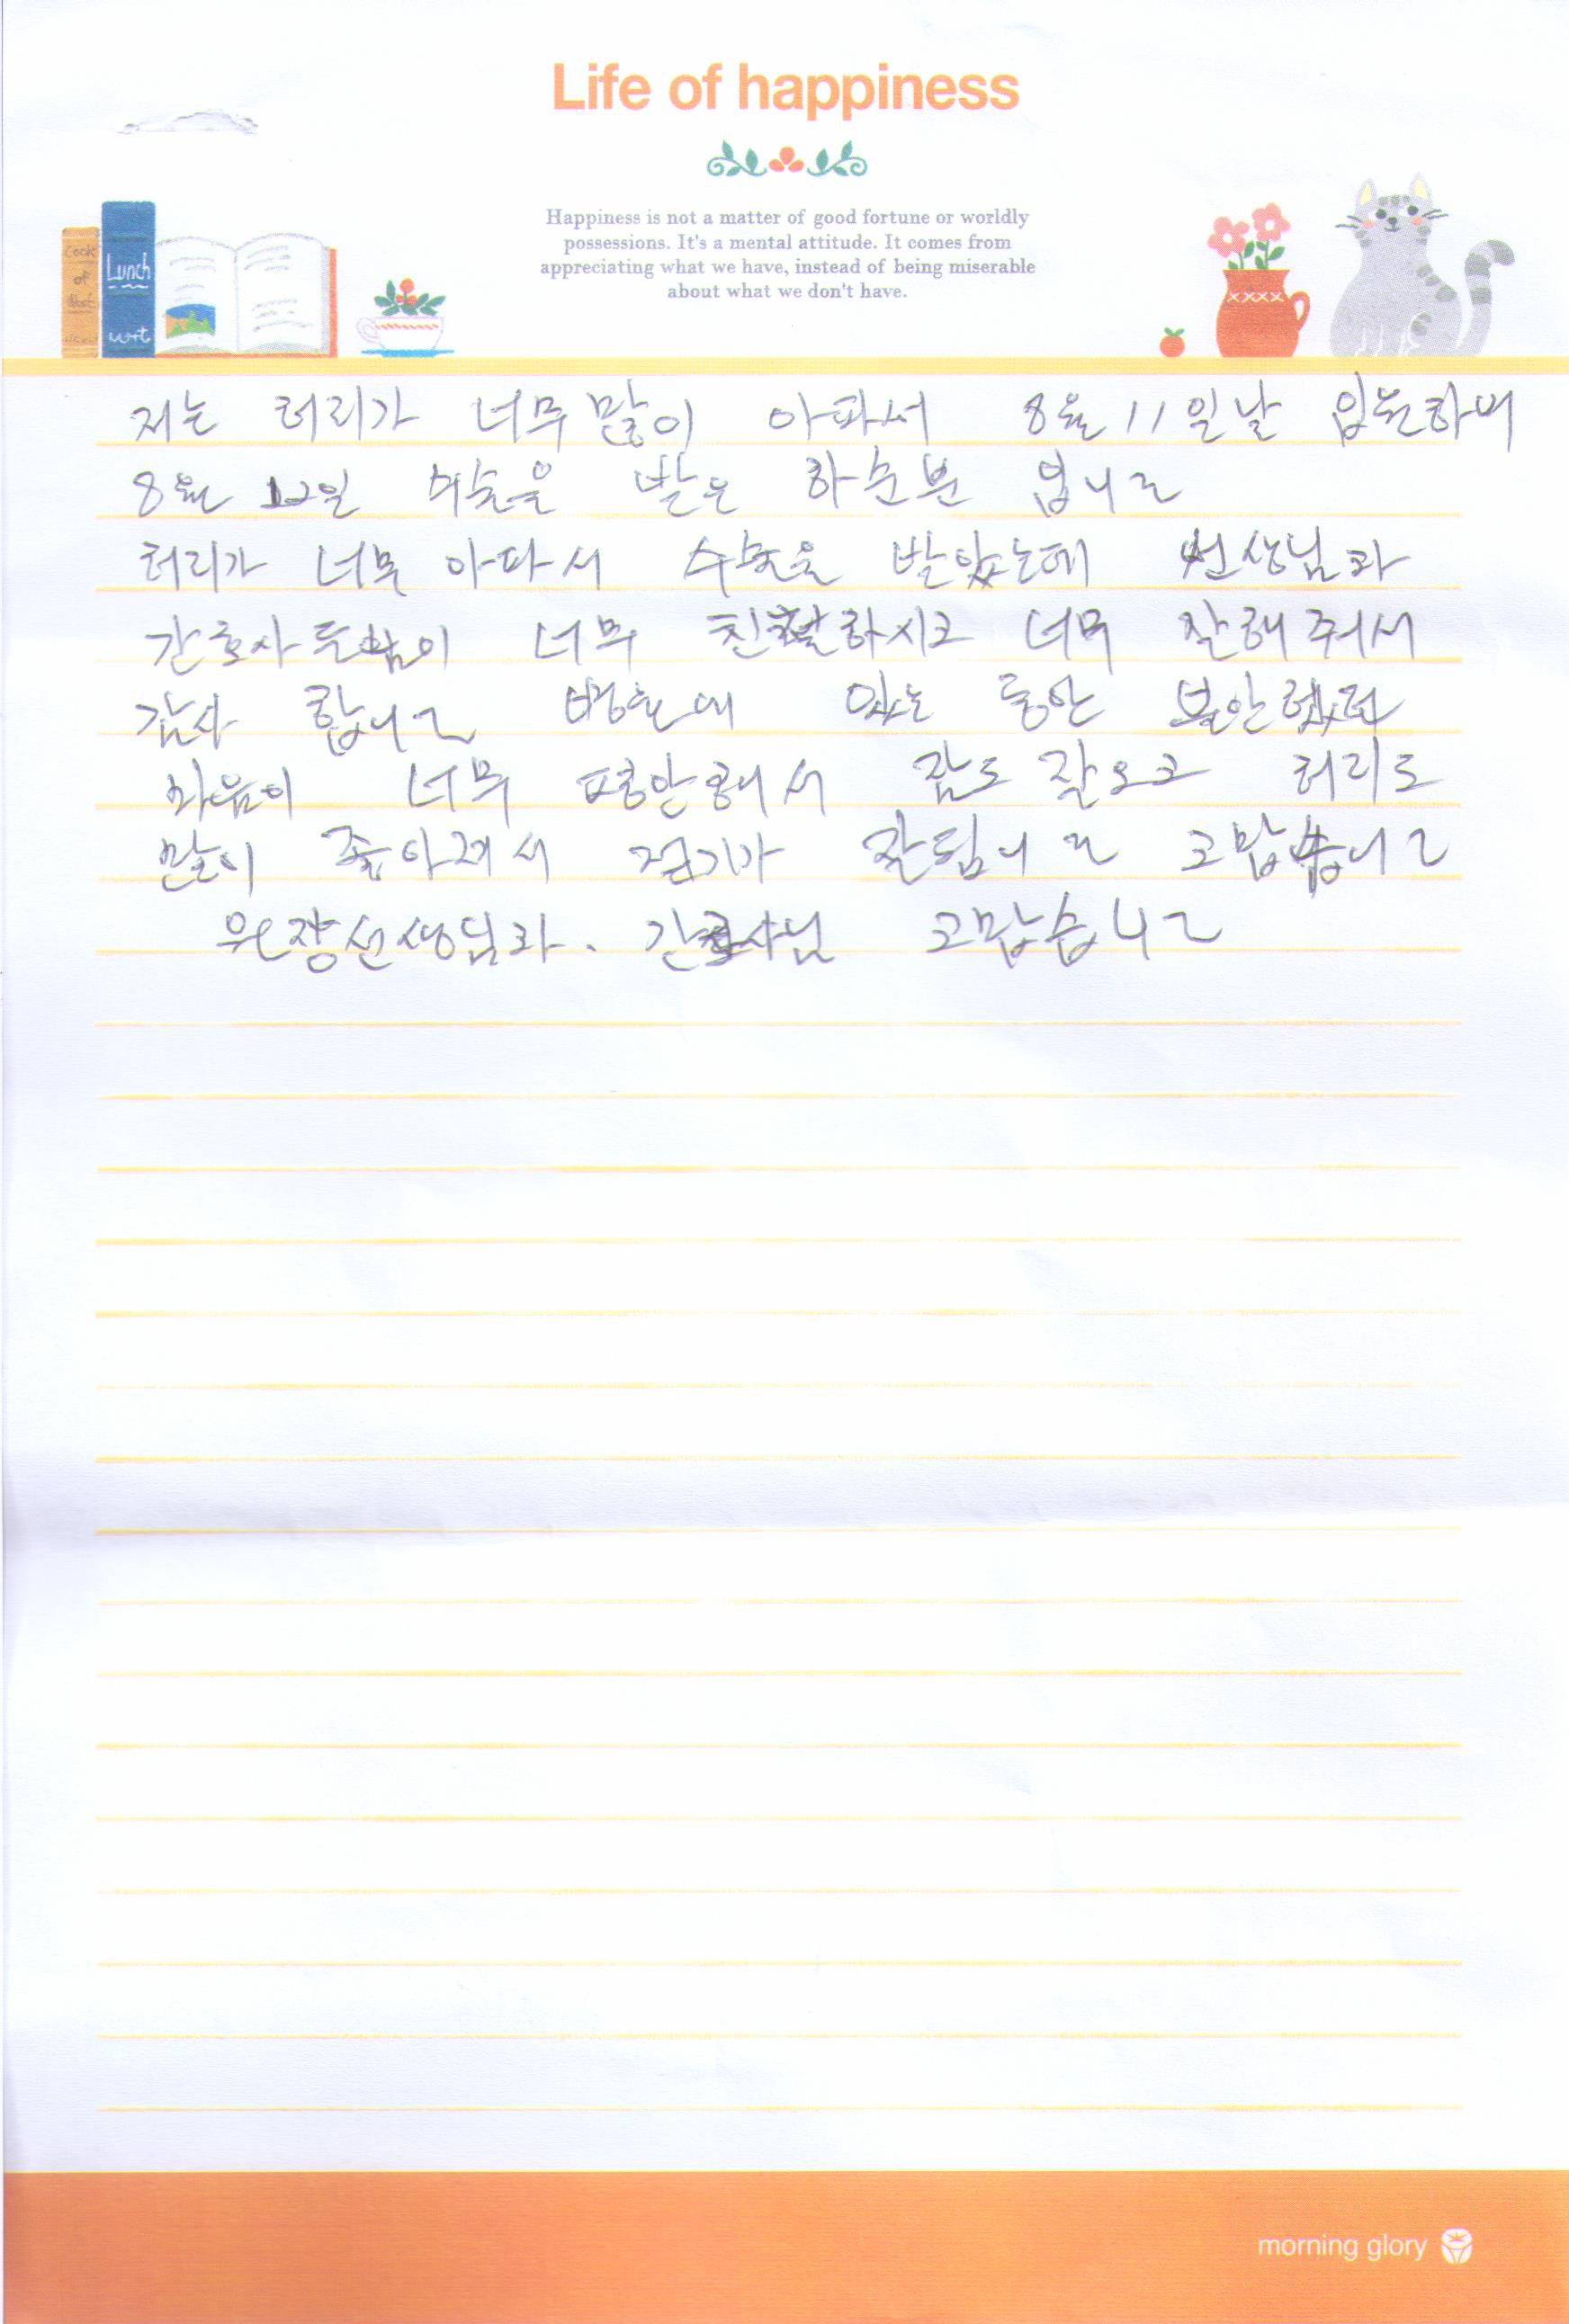 Life of happiness
Happiness is not a matter of good fortune or worldly
possessions. It's a mental attitude. It comes from
appreciating what we have, instead of being miserable
about what we don't have.
Cook
of
Lunch
저는 허리가 너무 많이 아파서 8월 11일날 입원하여
8월 12일 수술을 받은 하순분 입니다
허리가 너무 아파서 수술을 받았는데 선생님과
간호사들님이 너무 친절하시고 너무 잘해 줘서
감사 합니다 병원에 있는 동안 불안했던
마음이 너무 평안해서 잠도 잘오고 허리도
많이 좋아져서 걷기가 잘됩니다 고맙습니다
원장선생님과. 간호사님 고맙습니다
morning glory